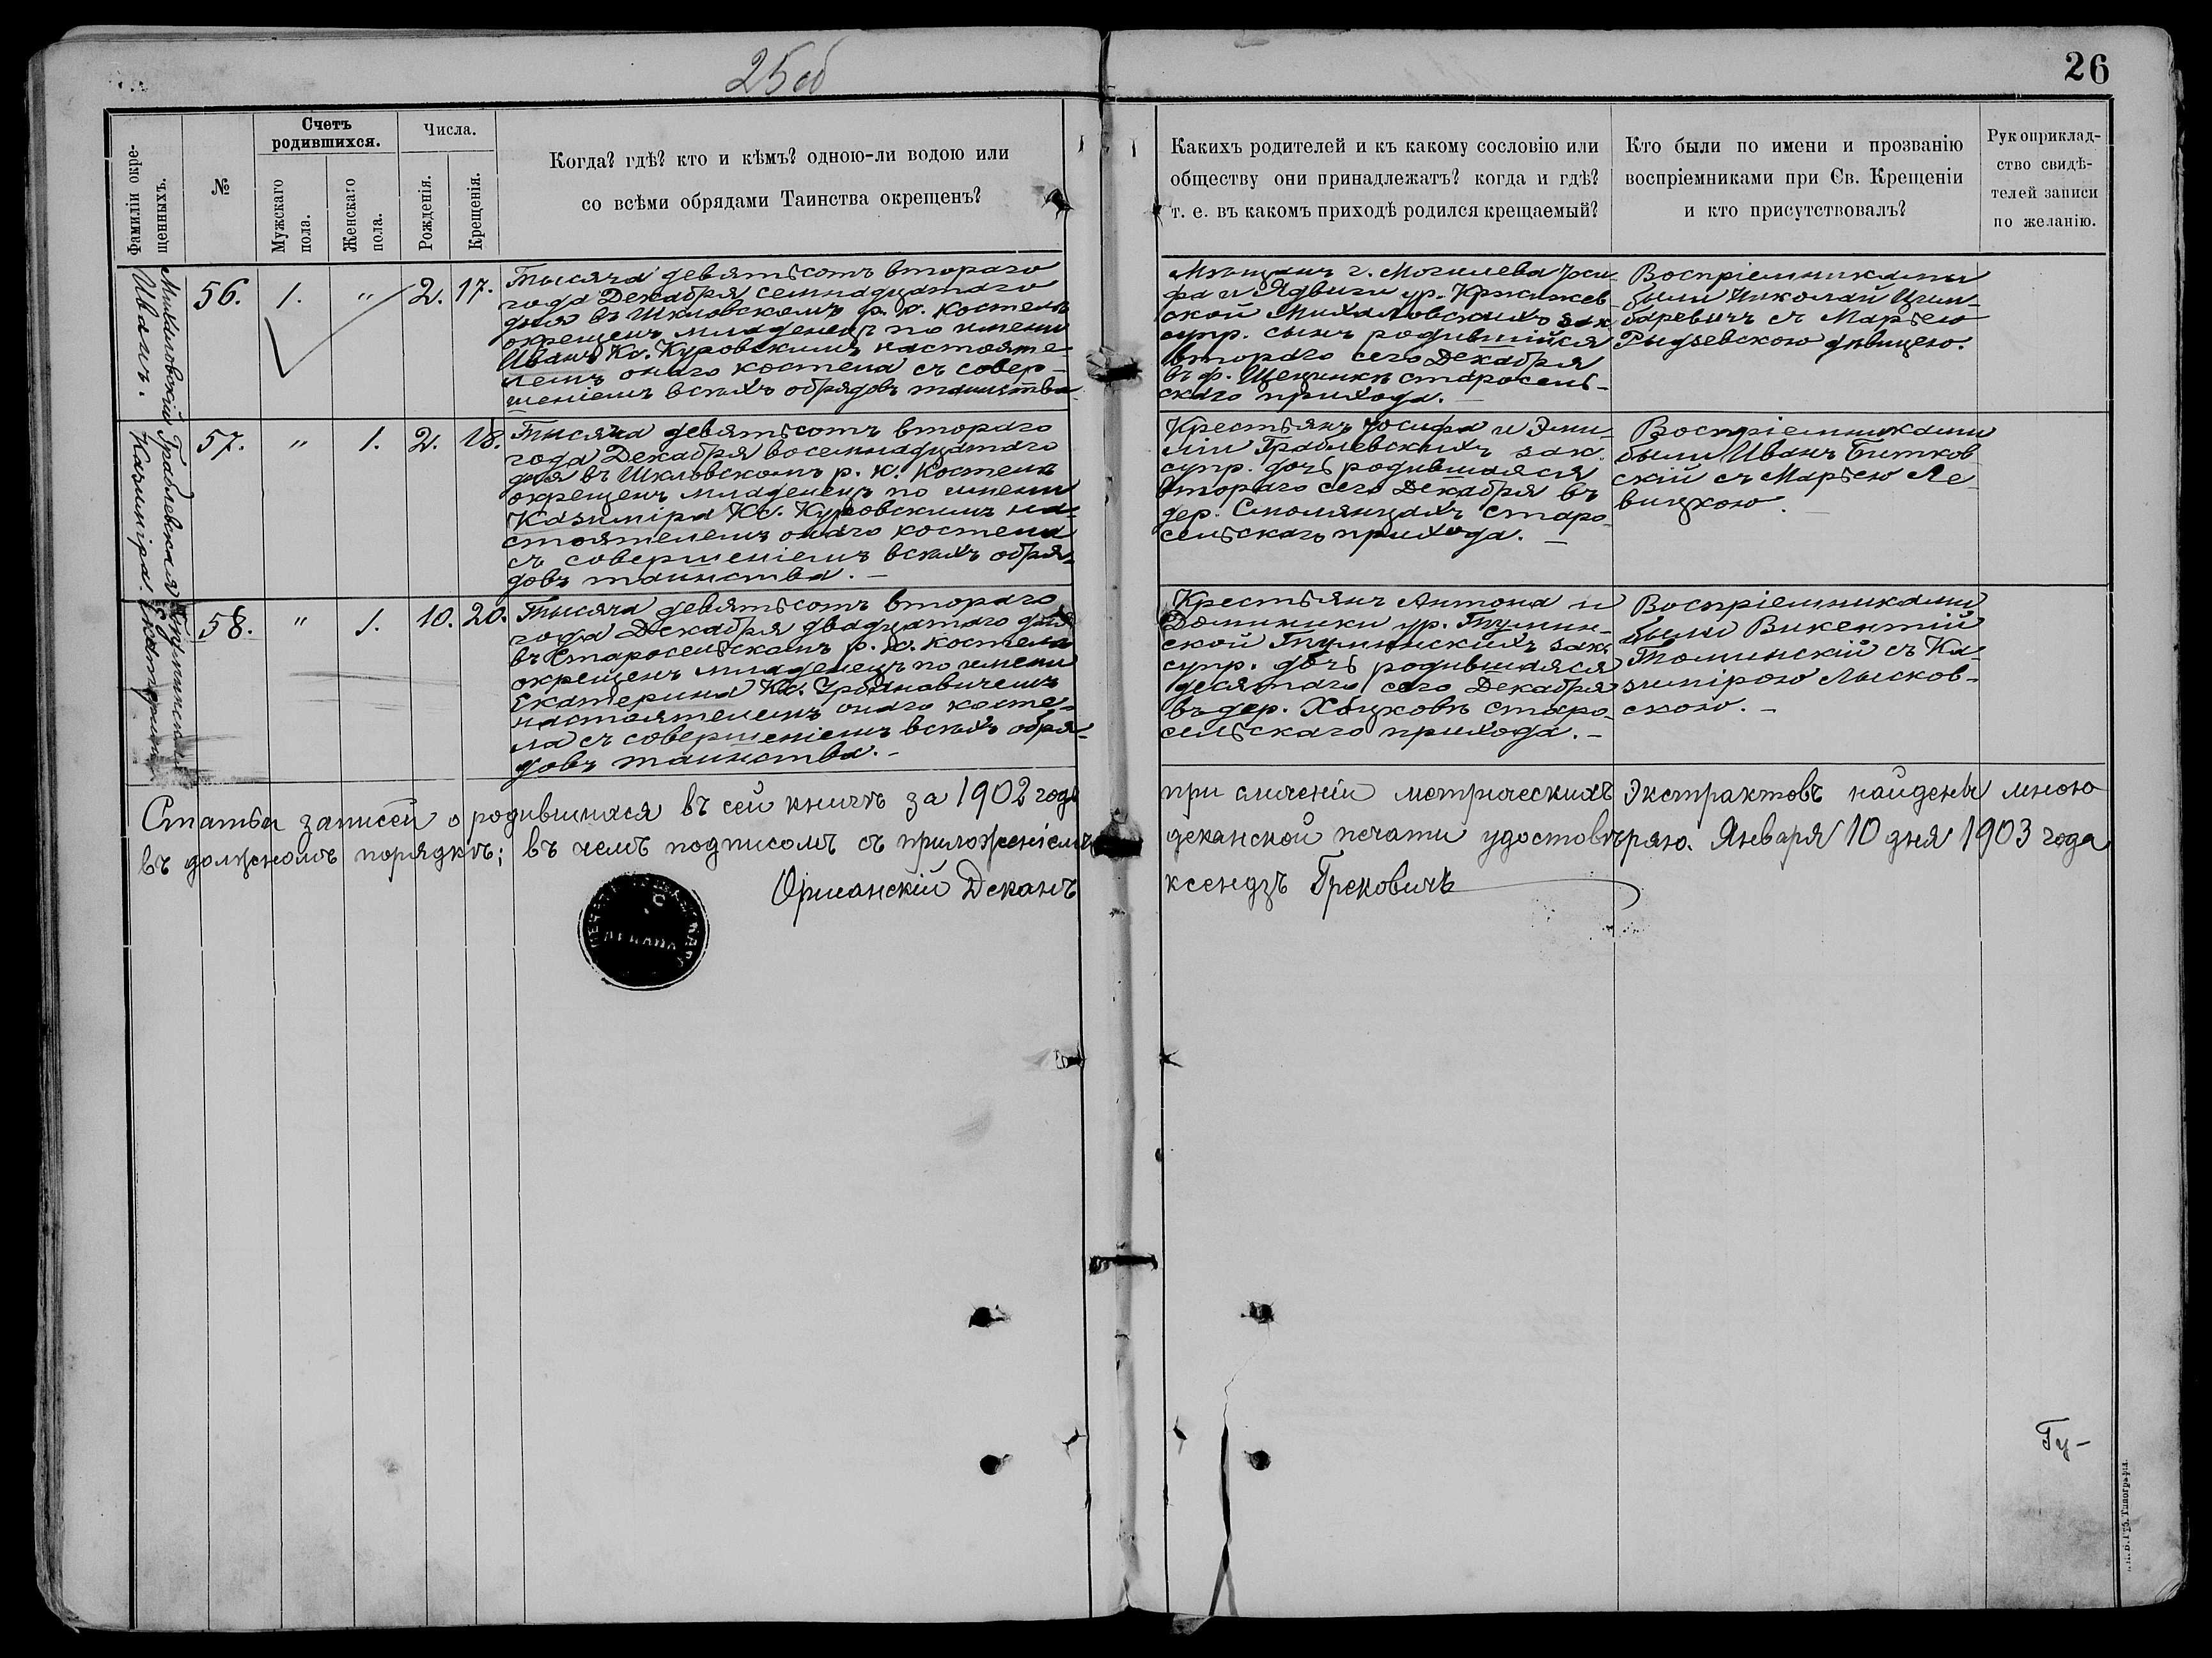 25об
26
Фамиліи окре-
щенныхъ.
№
Счетъ
родившихся.
Мужскаго
пола.
Женскаго
пола.
Числа.
Рожденія.
Крещенія.
Когда? гдѣ? кто и кѣмъ? одною-ли водою или
со всѣми обрядами Таинства окрещенъ?
Какихъ родителей и къ какому сословію или
обществу они принадлежатъ? когда и гдѣ?
т. е. въ какомъ приходѣ родился крещаемый?
Кто были по имени и прозванію
воспріемниками при Св. Крещеніи
и кто присутствовалъ?
Рукоприклад-
ство свидѣ-
телей записи
по желанію.
Михаловскій
Иванъ.
56.
1.
"
2.
17.
Тысяча девятьсотъ второго
года Декабря семнадцатаго
дня въ Шкловскомъ р. к. костелѣ
окрещенъ младенецъ по имени
Иванъ Кс. Куровскимъ настояте-
лемъ онаго костела съ совер-
шеніемъ всѣхъ обрядовъ таинства
Мѣщанъ г. Могилева Іоси-
фа и Ядвиги ур. Кржижев-
ской Михаловскихъ зак.
супр. сынъ родившійся
второго сего Декабря
въ ф. Щецинкѣ старосель-
скаго прихода.
Воспріемниками
были Николай Цим-
баревичъ съ Марьею
Рыдзевскою дѣвицею.
Граблевская
Казиміра.
57.
"
1.
2.
18.
Тысяча девятьсотъ второго
года Декабря восемнадцатаго
дня въ Шкловскомъ р. к. костелѣ
окрещенъ младенецъ по имени
Казиміра Кс. Куровскимъ на-
стоятелемъ онаго костела
съ совершеніемъ всѣхъ обря-
довъ таинства. —
Крестьянъ Іосифа и Эми-
ліи Граблевскихъ зак.
супр. дочь родившаяся
второго сего Декабря въ
дер. Смолянцахъ старо-
сельскаго прихода. —
Воспріемниками
были Иванъ Битков-
скій съ Марьею Ле-
вицкою. —
Екатерина
58.
"
1.
10.
20.
Тысяча девятьсотъ второго
года Декабря двадцатаго дня
въ Старосельскомъ р. к. костелѣ
окрещенъ младенецъ по имени
Екатерина Кс. Урбановичемъ
настоятелемъ онаго косте-
ла съ совершеніемъ всѣхъ обря-
довъ таинства. —
Крестьянъ Антона и
Доминики ур. Тумин-
ской Тумински­хъ зак.
супр. дочь родившаяся
десятаго сего Декабря
въ дер. Хацковѣ старо-
сельскаго прихода. —
Воспріемниками
были Викентій
Томинскій съ Ка-
зимірою Лысков-
скою. —
Статьи записей о родившихся въ сей книгѣ за 1902 годъ при сличеніи метрическихъ экстрактовъ найдены мною
въ должномъ порядкѣ; въ чемъ подписомъ съ приложеніемъ деканской печати удостовѣряю. Января 10 дня 1903 года
Оршанскій Деканъ ксендзъ Грековичъ
ДЕКАНА